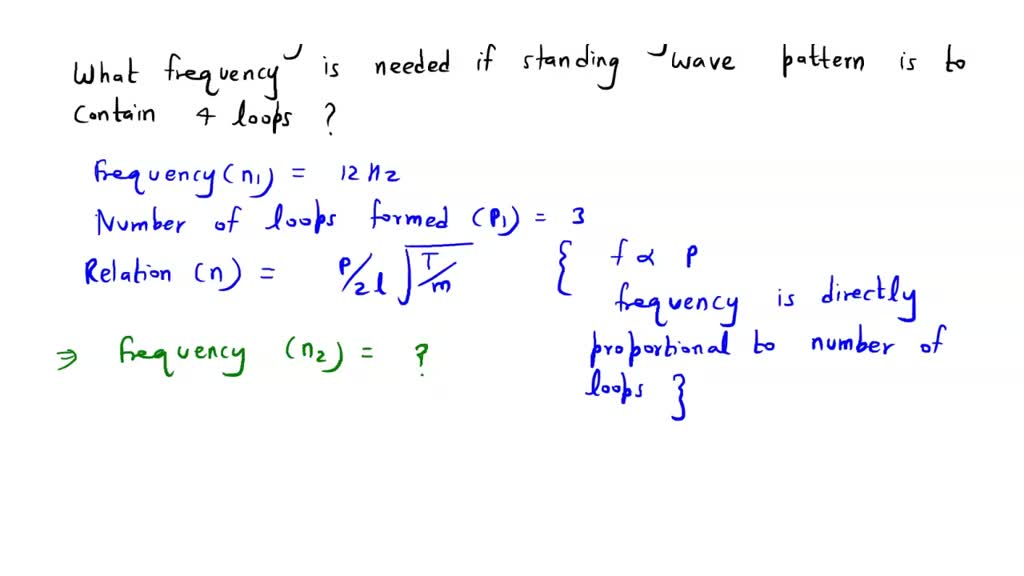 What frequency is needed if standing wave pattern is to
contain 4 loops ?
frequency (n1) = 12 Hz
Number of loops formed (P1) = 3
Relation (n) = P/2l √T/m { f ∝ P
frequency is directly
proportional to number of
loops }
⇒ frequency (n2) = ?